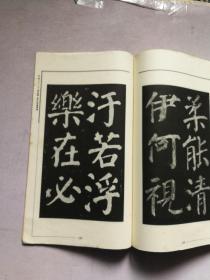 柔能清
伊何視
汙若浮
樂在必